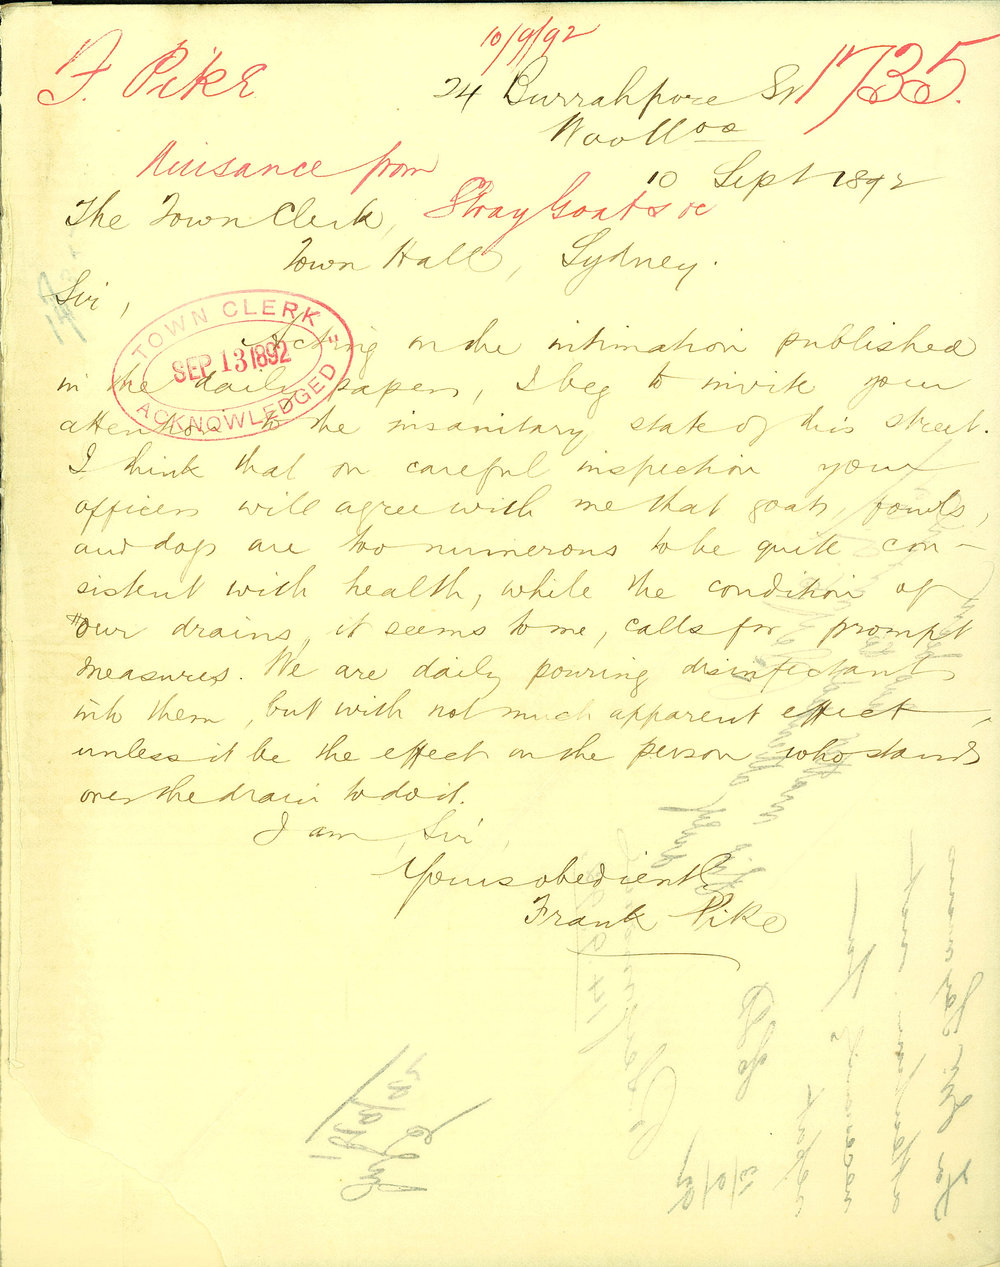 10/9/92
F. Pike
1735.
24 Burrahpore St
Woolloo
Nuisance from
10 Sept 1892
The Town Clerk,
Stray Goats &c
Town Hall, Sydney.
Sir,
TOWN CLERK
SEP 13 1892
ACKNOWLEDGED
Acting on the intimation published
in the daily papers, I beg to invite your
attention to the insanitary state of this street.
I think that on careful inspection your
officers will agree with me that goats, fowls,
and dogs are too numerous to be quite con-
sistent with health, while the condition of
our drains, it seems to me, calls for prompt
measures. We are daily pouring disinfectants
into them, but with not much apparent effect,
unless it be the effect on the person who stands
over the drain to do it.
I am, Sir,
Yours obediently
Frank Pike